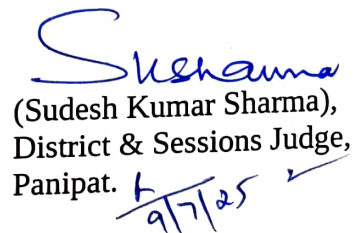 (Sudesh Kumar Sharma),
District & Sessions Judge,
Panipat.
9/7/25